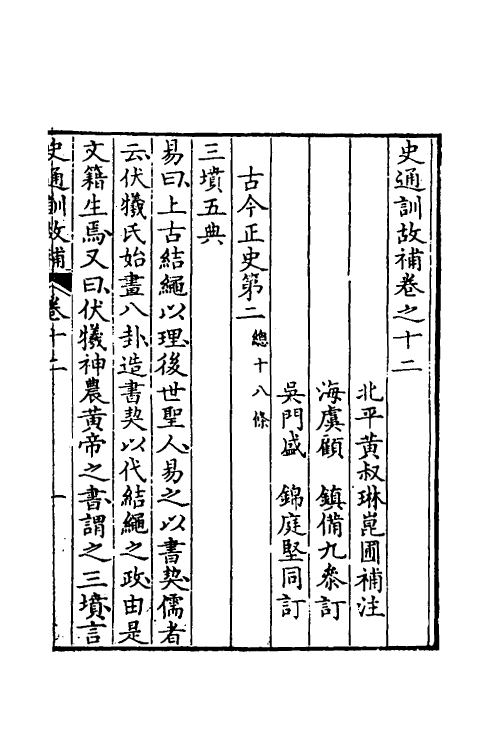 史通訓故補卷之十二
北平黃叔琳崑圃補注
海虞顧　鎮備九叅訂
吳門盛　錦庭堅同訂
古今正史第二 總十八條
三墳五典
易曰上古結繩以理後世聖人易之以書契儒者
云伏犧氏始畫八卦造書契以代結繩之政由是
文籍生焉又曰伏犧神農黃帝之書謂之三墳言
史通訓故補 卷十二 一